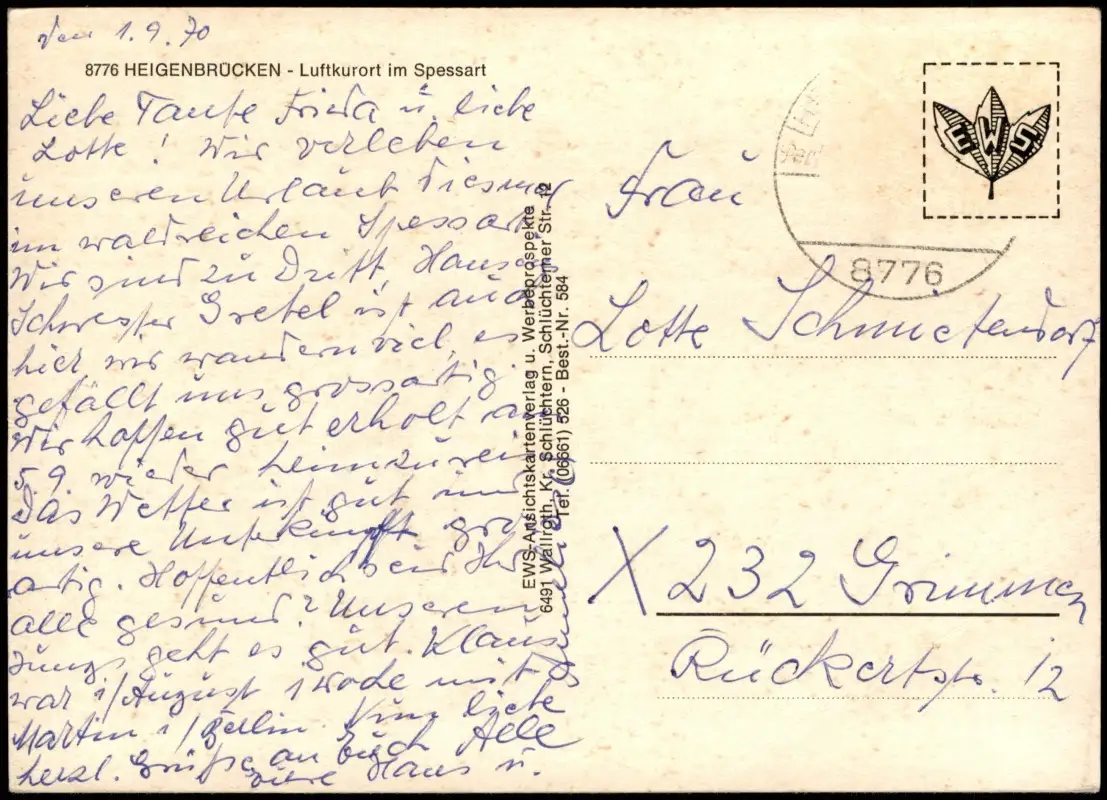 den 1.9.70
8776 HEIGENBRÜCKEN - Luftkurort im Spessart
Liebe Tante Frieda u. liebe
Lotte! Wir verleben
unseren Urlaub diesmal
im waldreichen Spessart.
Wir sind zu Dritt, Hans
Schwester Gretel ist auch
hier wir wandern viel, es
gefällt uns grossartig.
Wir hoffen gut erholt am
5.9 wieder heimzureisen
Das Wetter ist gut und
unsere Unterkunft gross
artig. Hoffentlich seid Ihr
alle gesund? Unseren
Jungs geht es gut. Klaus
war i/August 1 Woche mit
Martin i/Berlin. Nun liebe
herzl. Grüße an Euch Alle
Hans u.
EWS-Ansichtskartenverlag u. Werbeprospekte
6491 Wallroth, Kr. Schlüchtern, Schlüchterner Str. 12
Tel. (06661) 526 - Best.-Nr. 584
EWS
8776
Frau
Lotte Schmietendorf
X 232 Grimmen
Rückertstr. 12